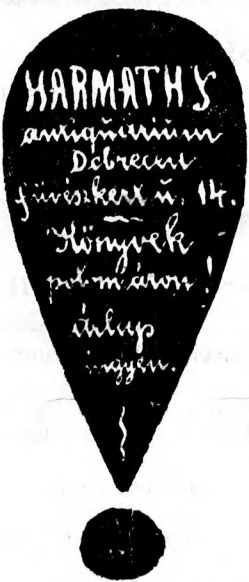 HARMATHY
antiquárium
Debrecen
füvészkert u. 14.
Könyvek
potom áron!
ingyen.